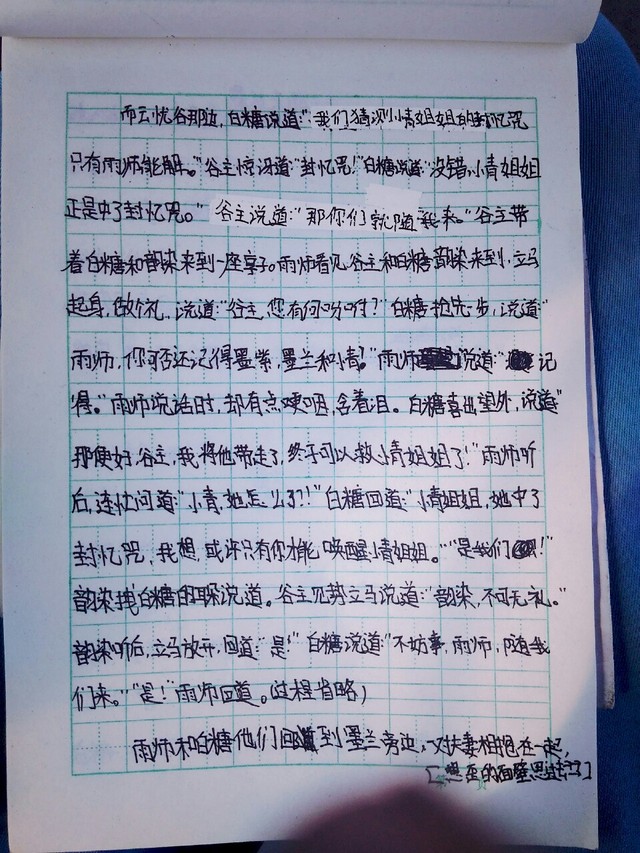 而云忧谷那边，白糖说道：“我们猜测小青姐姐的封忆咒
只有雨师能解。”谷主惊讶道：“封忆咒！”白糖说道：“没错，小青姐姐
正是中了封忆咒。”谷主说道：“那你们就随我来。”谷主带
着白糖和韵染来到一座亭子。雨师看见谷主和白糖韵染来到，立马
起身，做个礼，说道：“谷主，您有何吩咐？”白糖抢先一步，说道：“
雨师，你可否还记得墨紫，墨兰和小青？”雨师说道：“记
得。”雨师说话时，却有点哽咽，含着泪。白糖喜出望外，说道：“
那便好，谷主，我将他带走了，终于可以救小青姐姐了！”雨师听
后，连忙问道：“小青，她怎么了？！”白糖回道：“小青姐姐，她中了
封忆咒，我想，或许只有你才能唤醒小青姐姐。”“是我们！”
韵染拽白糖的耳朵说道。谷主见势立马说道：“韵染，不可无礼。”
韵染听后，立马放开，回道：“是！”白糖说道：“不妨事，雨师，随我
们来。”“是！”雨师回道。（过程省略）
雨师和白糖他们回到墨兰旁边，一对夫妻相抱在一起，
[想歪的面壁思过去]